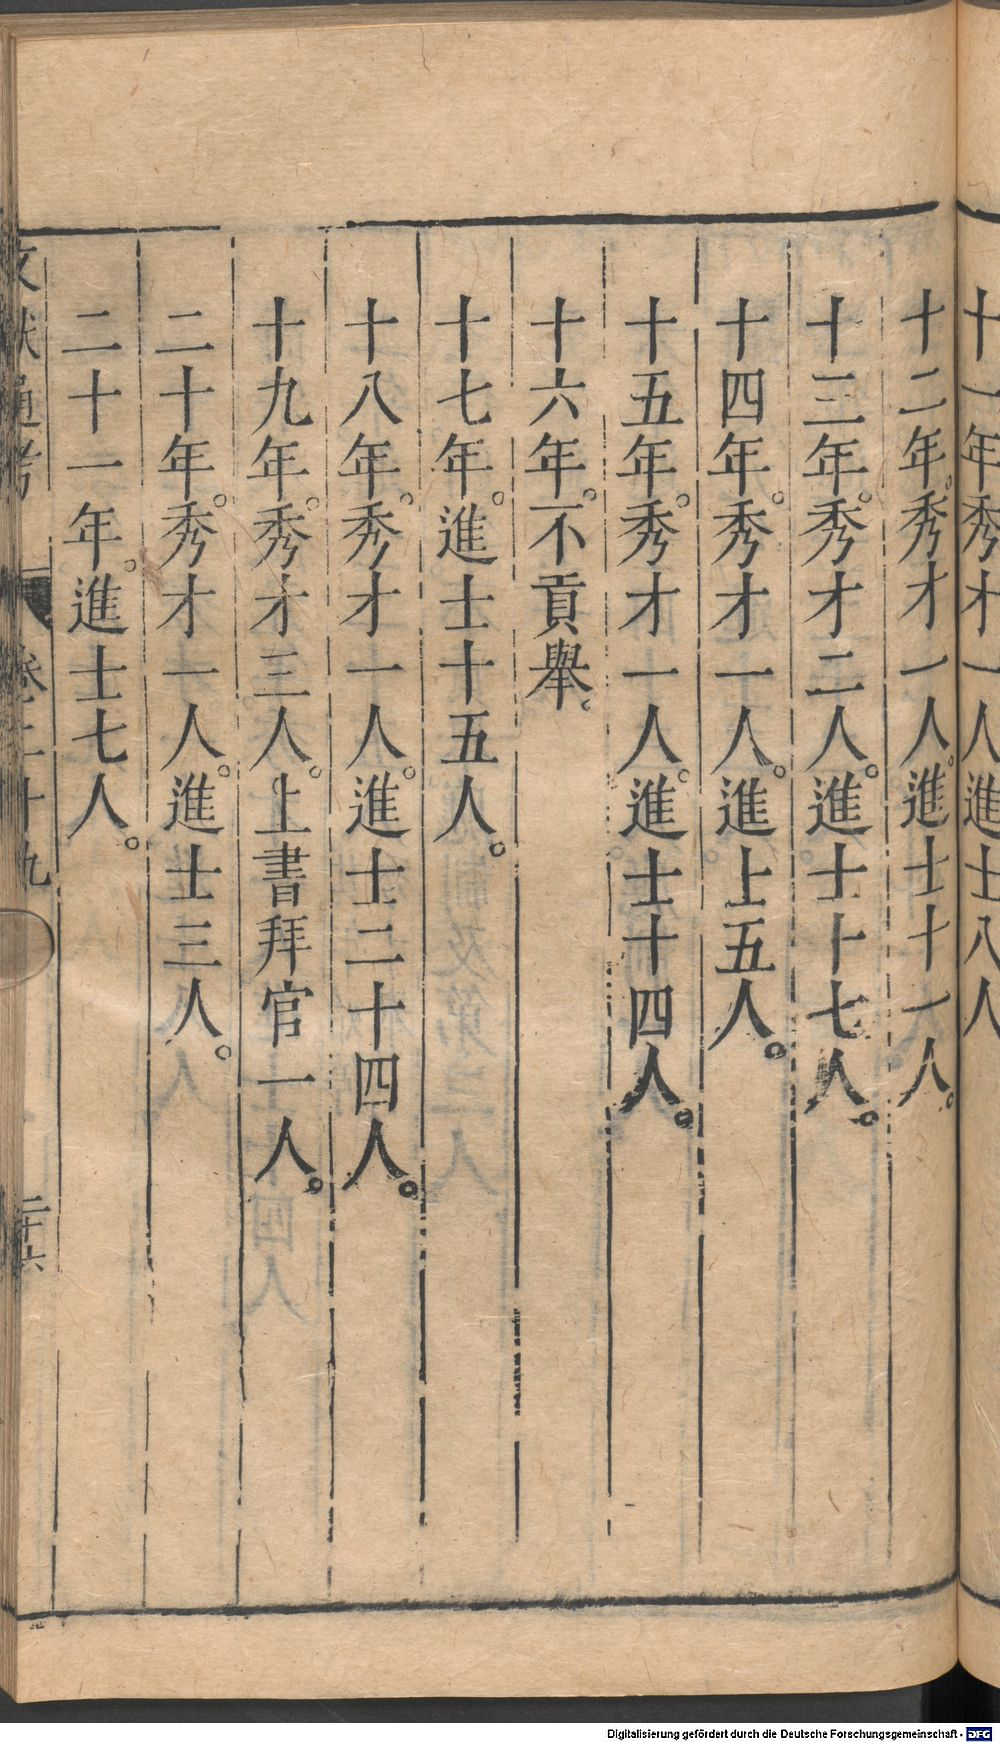 十一年秀才一人進士八人
十二年。秀才一人。進士十一人。
十三年。秀才二人。進士十七人。
十四年。秀才一人。進上五人。
十五年。秀才一人。進士十四人。
十六年。不貢舉。
十七年。進士十五人。
十八年。秀才一人。進士二十四人。
十九年。秀才三人。上書拜官一人。
二十年。秀才一人。進士三人。
二十一年。進士七人。
文獻通考 卷二十九 二十六
Digitalisierung gefördert durch die Deutsche Forschungsgemeinschaft - DFG